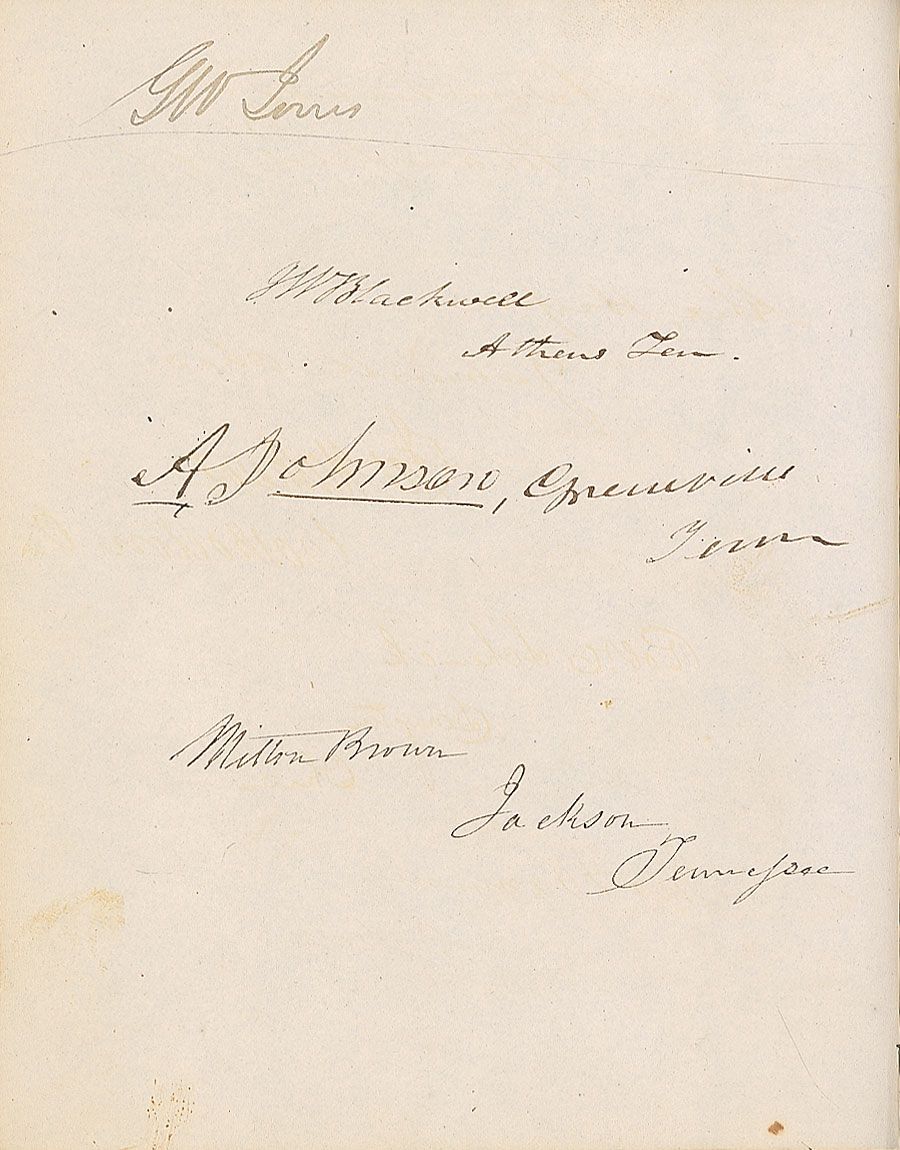 GW Jones
J W Blackwell
Athens Ten.
A Johnson, Greeneville
Tenn
Milton Brown
Jackson
Tennessee